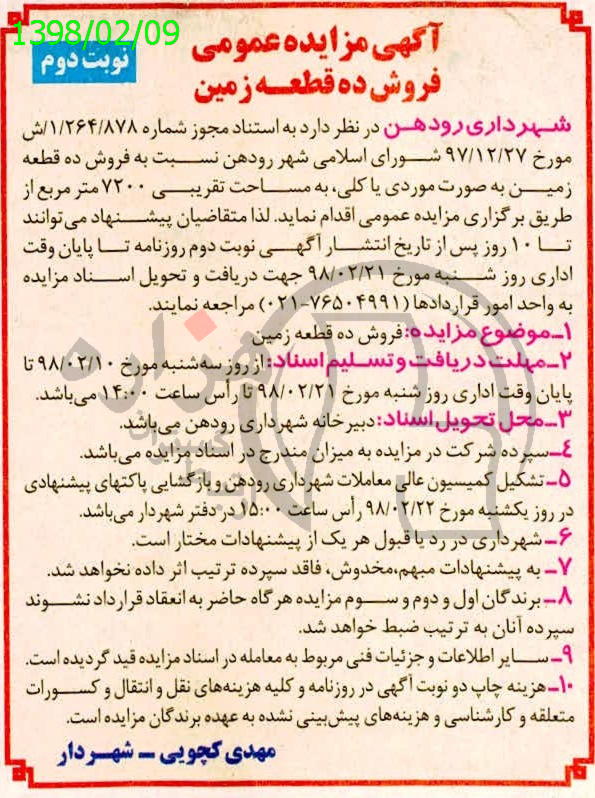 1398/02/09
آگهی مزایده عمومی
نوبت دوم
فروش ده قطعه زمین
شهرداری رودهن در نظر دارد به استناد مجوز شماره ۱/۲۶۴/۸۷۸/ش
مورخ ۹۷/۱۲/۲۷ شورای اسلامی شهر رودهن نسبت به فروش ده قطعه
زمین به صورت موردی یا کلی، به مساحت تقریبی ۷۲۰۰ متر مربع از
طریق برگزاری مزایده عمومی اقدام نماید. لذا متقاضیان پیشنهاد می‌توانند
تا ۱۰ روز پس از تاریخ انتشار آگهی نوبت دوم روزنامه تا پایان وقت
اداری روز شنبه مورخ ۹۸/۰۲/۲۱ جهت دریافت و تحویل اسناد مزایده
به واحد امور قراردادها (۷۶۵۰۴۹۹۱-۰۲۱) مراجعه نمایند.
۱-موضوع مزایده:فروش ده قطعه زمین
۲-مهلت دریافت و تسلیم اسناد: از روز سه‌شنبه مورخ ۹۸/۰۲/۱۰ تا
پایان وقت اداری روز شنبه مورخ ۹۸/۰۲/۲۱ تا رأس ساعت ۱۴:۰۰ می‌باشد.
۳-محل تحویل اسناد: دبیرخانه شهرداری رودهن می‌باشد.
۴-سپرده شرکت در مزایده به میزان مندرج در اسناد مزایده می‌باشد.
۵- تشکیل کمیسیون عالی معاملات شهرداری رودهن و بازگشایی پاکتهای پیشنهادی
در روز یکشنبه مورخ ۹۸/۰۲/۲۲ رأس ساعت ۱۵:۰۰ در دفتر شهردار می‌باشد.
۶- شهرداری در رد یا قبول هر یک از پیشنهادات مختار است.
۷- به پیشنهادات مبهم،مخدوش، فاقد سپرده ترتیب اثر داده نخواهد شد.
۸- برندگان اول و دوم و سوم مزایده هرگاه حاضر به انعقاد قرارداد نشوند
سپرده آنان به ترتیب ضبط خواهد شد.
۹- سایر اطلاعات و جزئیات فنی مربوط به معامله در اسناد مزایده قید گردیده است.
۱۰- هزینه چاپ دو نوبت آگهی در روزنامه و کلیه هزینه‌های نقل و انتقال و کسورات
متعلقه و کارشناسی و هزینه‌های پیش‌بینی نشده به عهده برندگان مزایده است.
مهدی کچویی - شهردار